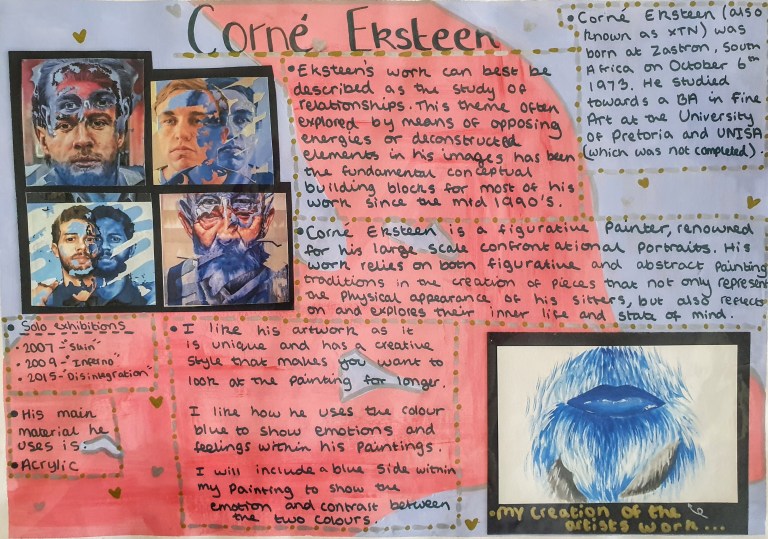 Corné Eksteen
• Corné Eksteen (also
known as XTN) was
born at Zastron, South
Africa on October 6th
1973. He studied
towards a BA in Fine
Art at the University
of Pretoria and UNISA
(which was not completed)
• Eksteen's work can best be
described as the study of
relationships. This theme often
explored by means of opposing
energies or deconstructed
elements in his images has been
the fundamental conceptual
building blocks for most of his
work since the mid 1990's.
• Corné Eksteen is a figurative Painter, renowned
for his large scale confrontational portraits. His
work relies on both figurative and abstract painting
traditions in the creation of pieces that not only represent
the physical appearance of his sitters, but also reflects
on and explores their inner life and state of mind.
• Solo exhibitions
• 2007 - "Skin"
• 2009 - "Inferno"
• 2015 - "Disintegration"
• His main
material he
uses is:
• Acrylic
• I like his artwork as it
is unique and has a creative
style that makes you want to
look at the painting for longer.
I like how he uses the colour
blue to show emotions and
feelings within his paintings.
I will include a blue side within
my painting to show the
emotion and contrast between
the two colours.
• my creation of the
artists work...